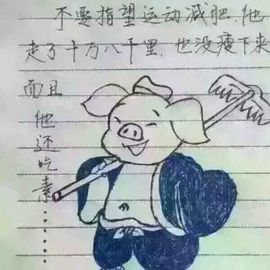 不要指望运动减肥,他
走了十万八千里,也没瘦下来
而且
他还吃素······